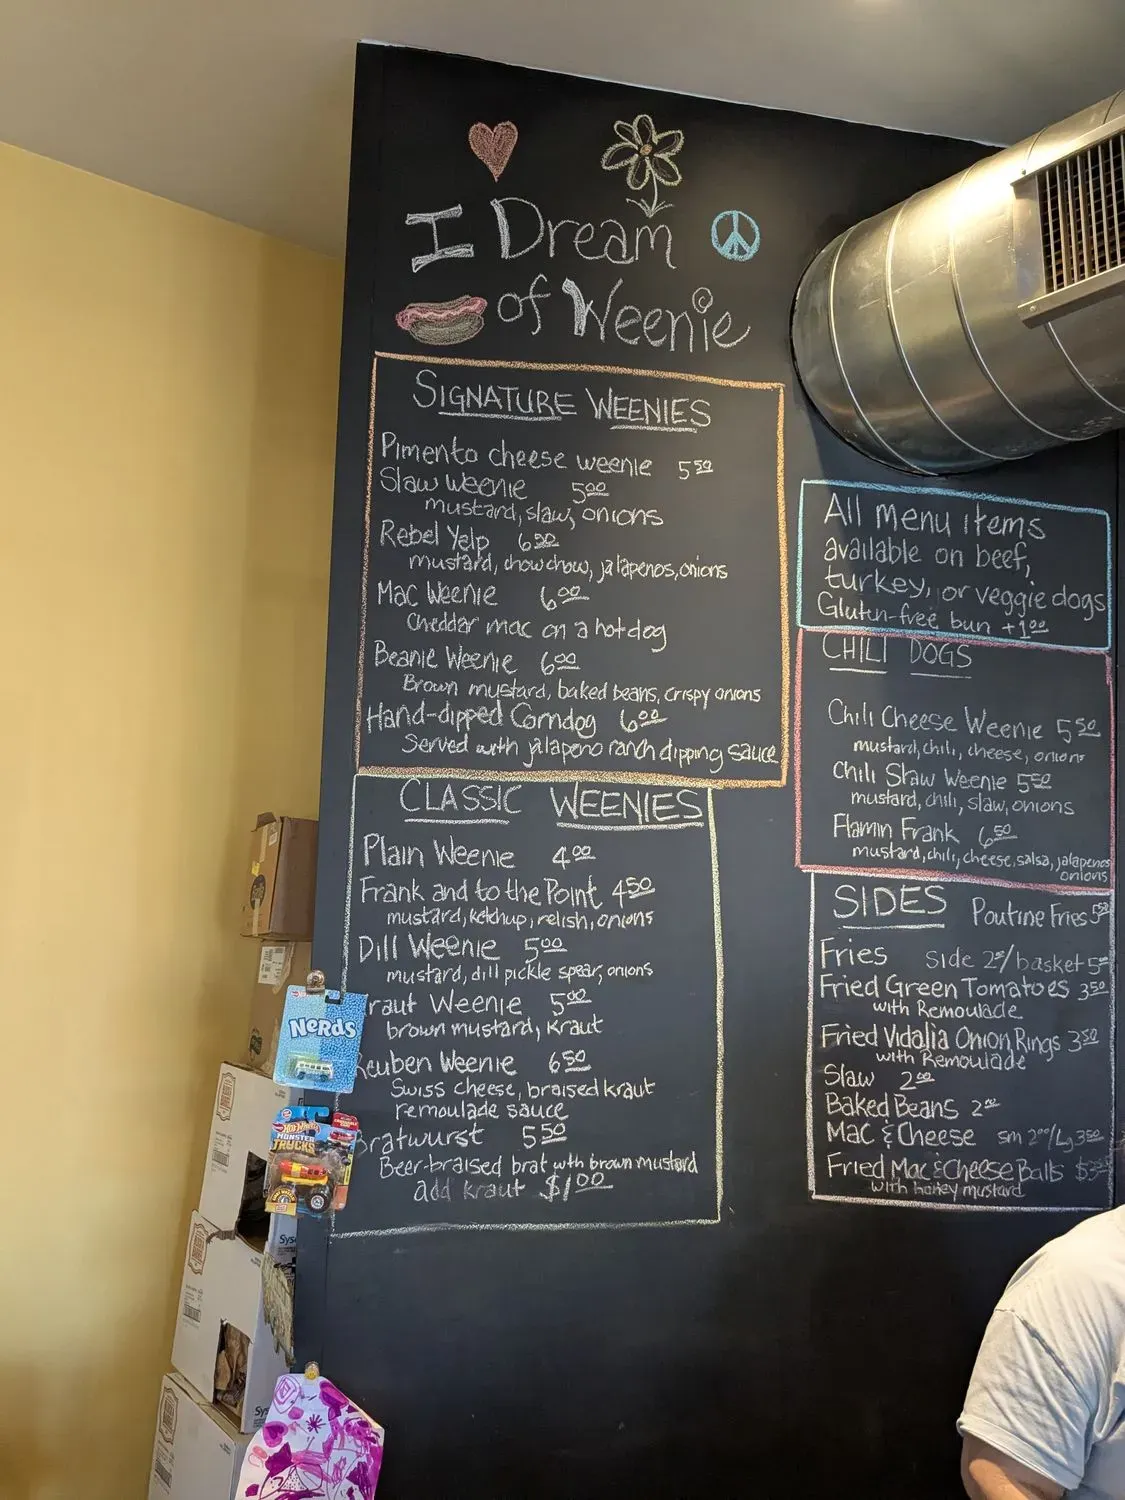 I Dream
of Weenie
SIGNATURE WEENIES
Pimento cheese weenie 5 50
Slaw Weenie 5 00
mustard, slaw, onions
Rebel Yelp 6 00
mustard, chow chow, jalapenos, onions
Mac Weenie 6 00
Cheddar mac on a hotdog
Beanie Weenie 6 00
Brown mustard, baked beans, crispy onions
Hand-dipped Corndog 6 00
Served with jalapeno ranch dipping sauce
CLASSIC WEENIES
Plain Weenie 4 00
Frank and to the Point 4 50
mustard, ketchup, relish, onions
Dill Weenie 5 00
mustard, dill pickle spear, onions
raut Weenie 5 00
brown mustard, Kraut
Reuben Weenie 6 50
Swiss cheese, braised kraut
remoulade sauce
Bratwurst 5 50
Beer-braised brat with brown mustard
add kraut $1 00
All menu items
available on beef,
turkey, or veggie dogs
Gluten-free bun +1 00
CHILI DOGS
Chili Cheese Weenie 5 50
mustard, chili, cheese, onions
Chili Slaw Weenie 5 50
mustard, chili, slaw, onions
Flamin Frank 6 50
mustard, chili, cheese, salsa, jalapenos
onions
SIDES Poutine Fries 5 50
Fries Side 2 /basket 5
Fried Green Tomatoes 3 50
with Remoulade
Fried Vidalia Onion Rings 3 50
with Remoulade
Slaw 2 00
Baked Beans 2 00
Mac & Cheese sm 2 00/Lg 3 50
Fried Mac & Cheese Balls $3 50
with honey mustard
NeRdS
Hot Wheels
MONSTER
TRUCKS
Sys
Sys